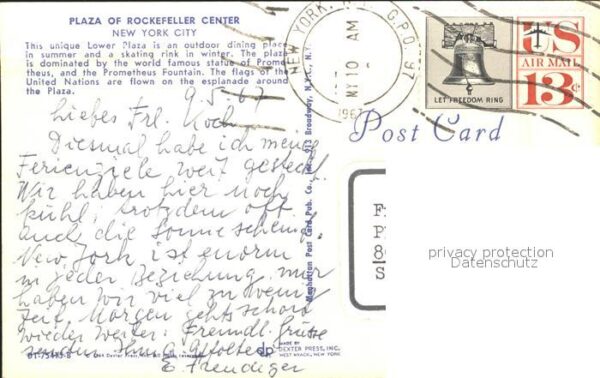 PLAZA OF ROCKEFELLER CENTER
NEW YORK CITY
This unique Lower Plaza is an outdoor dining place
in summer and a skating rink in winter. The plaza
is dominated by the world famous statue of Prome-
theus, and the Prometheus Fountain. The flags of the
United Nations are flown on the esplanade around
the Plaza.
9.5.67
Liebes Frl. Koch
Diesmal habe ich mein
Ferienziele weit gesteckt
Wir haben hier noch
kühl, trotzdem oft
auch die Sonne scheint.
New York ist enorm
in jeder Beziehung, nur
haben wir viel zu wenig
Zeit. Morgen geht's schon
wieder weiter. Freundl. Grüsse
senden Ihnen
E. Freudiger
DEXTER PRESS, INC.
WEST NYACK, NEW YORK
Manhattan Post Card Pub. Co., Inc. 913 Broadway, N.Y.C., N.Y.
NEW YORK, G.P.O.
AM
MY 10
1967
LET FREEDOM RING
US
AIR MAIL
13c
Post Card
privacy protection
Datenschutz